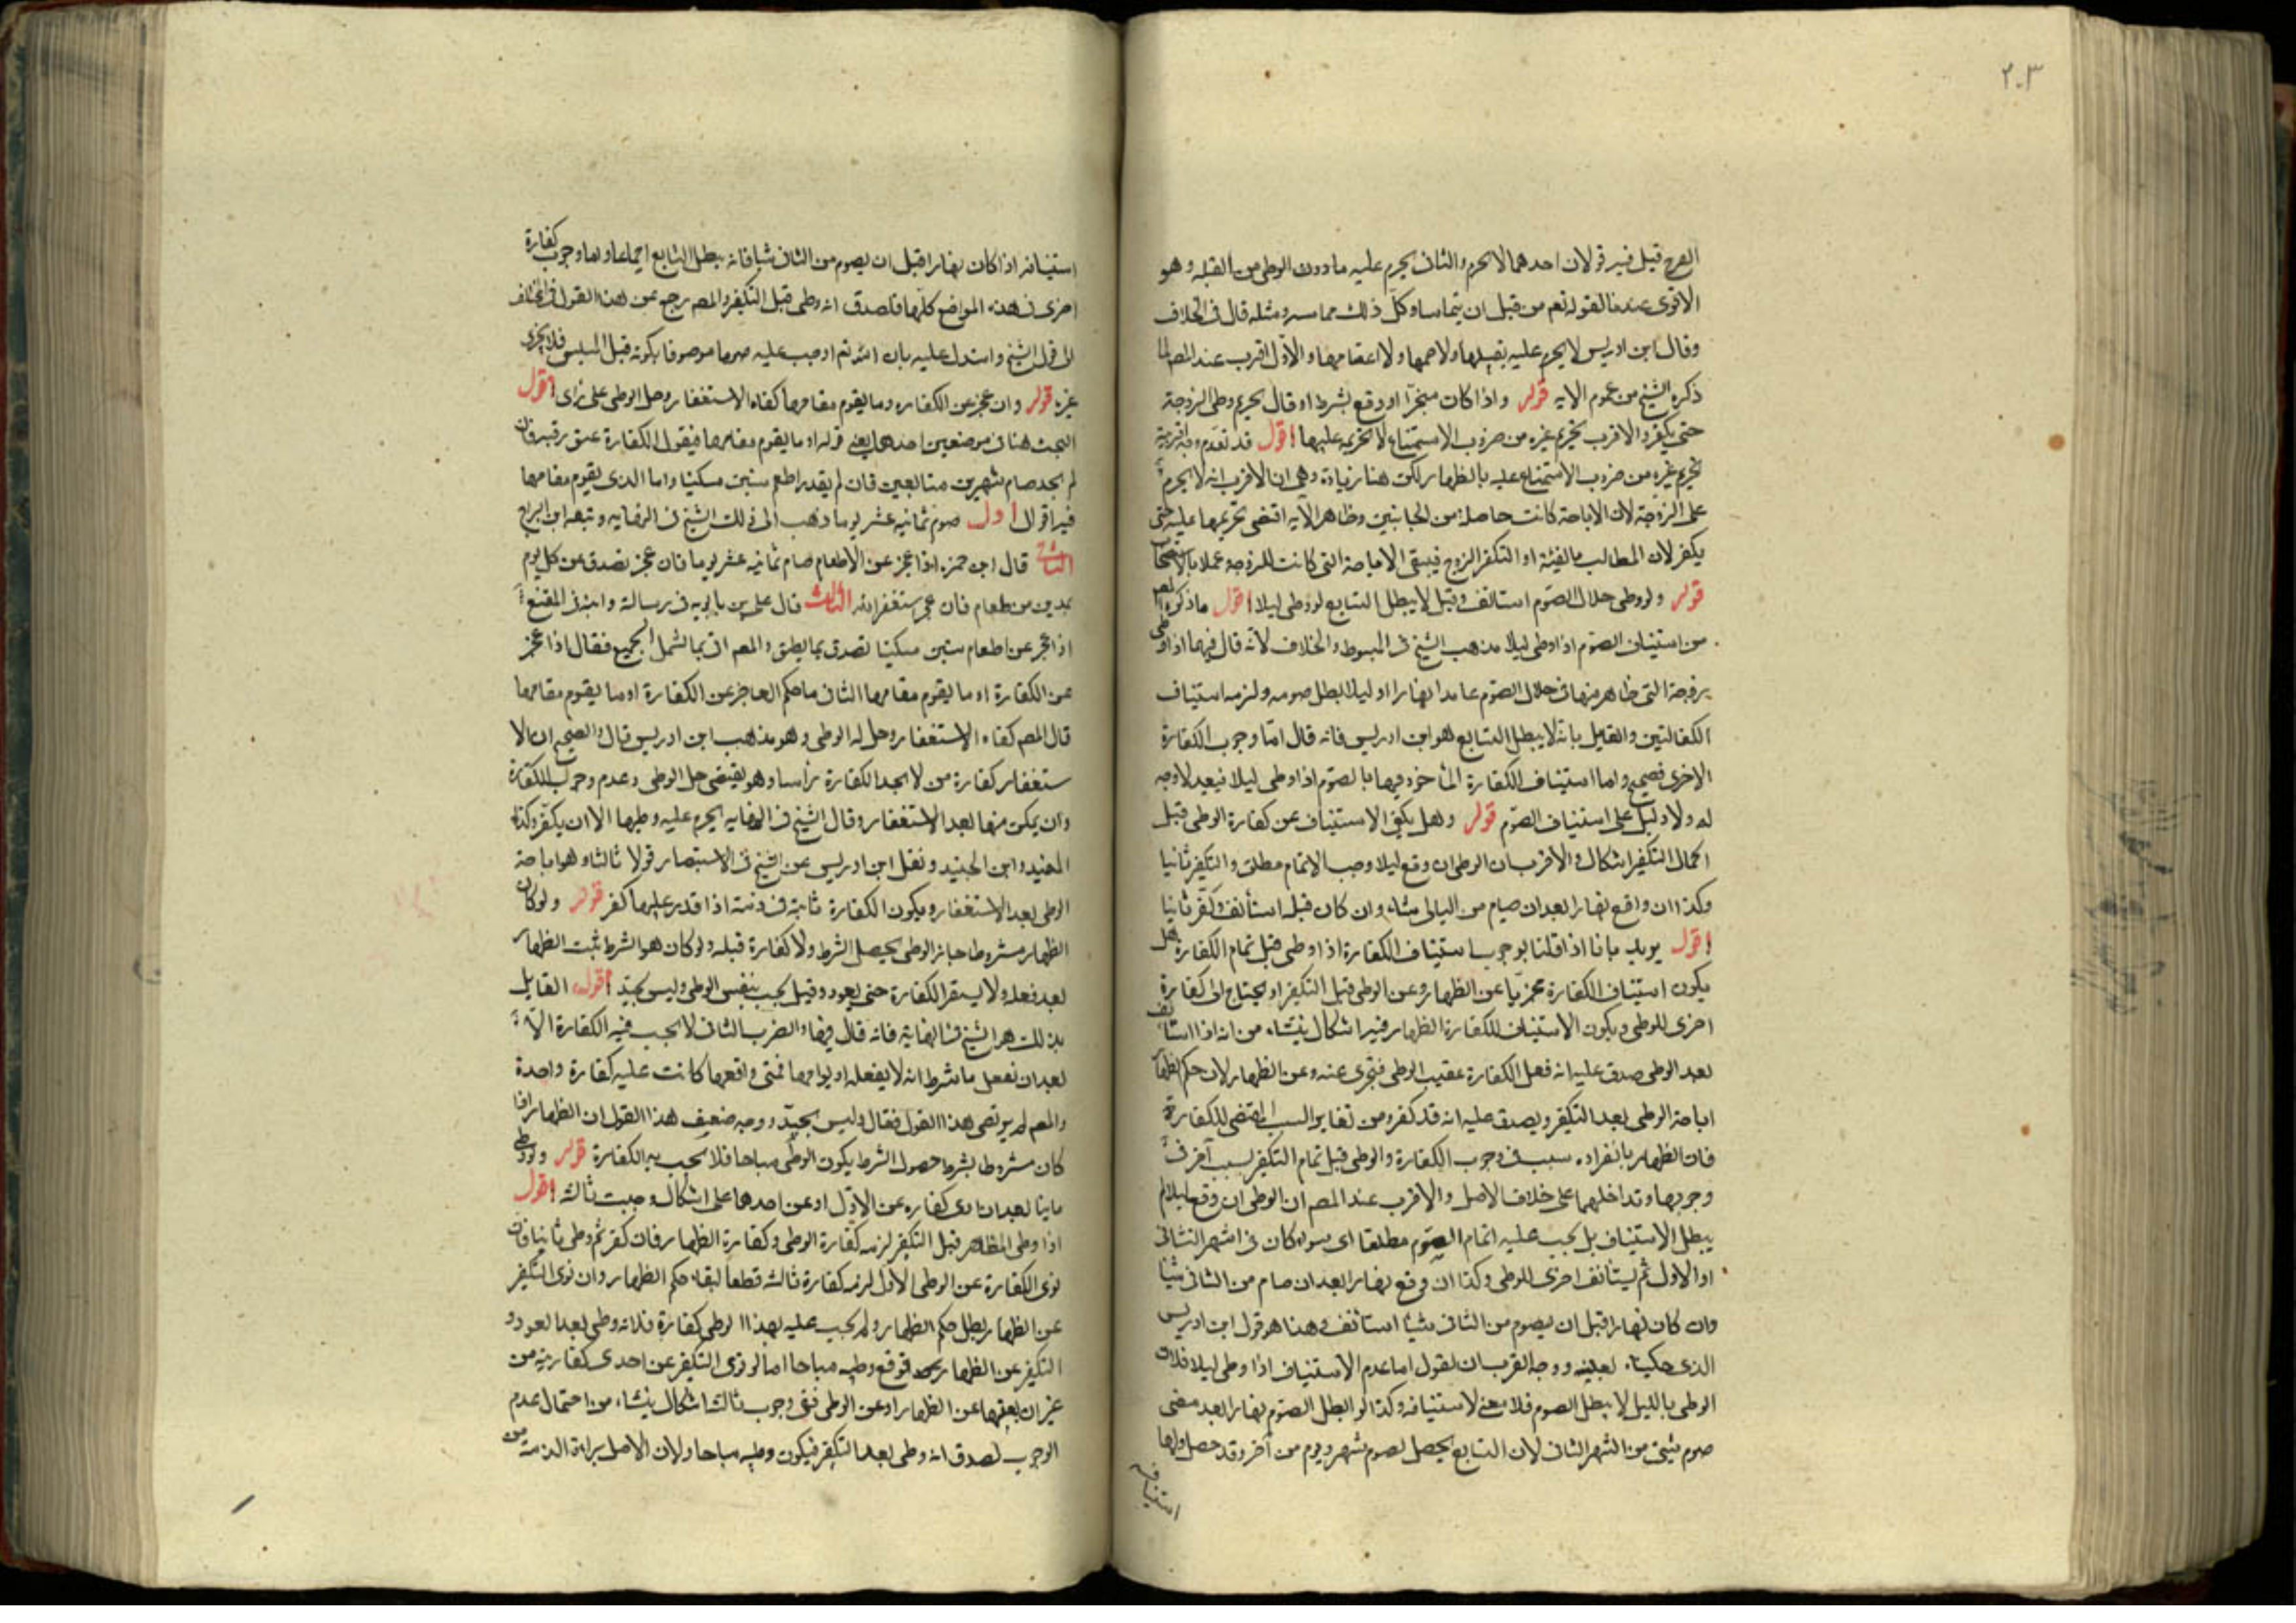 ٢٠٣
الفرج قيل فيه قولان احدهما لا يحرم والثانى يحرم عليه مادون الوطى من القبلة وهو
الاقوى عندنا لقوله تعم من قبل ان يتماسا وكل ذلك مماسه ومثله قال فى الخلاف
وقال ابن ادريس لا يحرم عليه تقبيلها ولا ضمها ولا اعتناقها والاول اقرب عند المصم لما
ذكره الشيخ من عموم الايه قوله واذا كان منجزا او وقع بشرط او قال يحرم وطى الزوجة
حتى يكفر والاقرب تحريم غيره من ضروب الاستمتاع لا تحريمه عليها اقول قد تقدم وجه اقربية
تحريم غيره من ضروب الاستمتاع عليه بالظهار لكن هنا زيادة وهى ان الاقرب انه لا يحرم
على الزوجة لان الاباحة كانت حاصلة من الجانبين وظاهر الآيه اقتضى تحريمها عليه حتى
يكفر لان المطالب بالفئة او التكفير الزوج فيبقى الاباحة التى كانت للزوجة عملا بالاستصحاب
قوله ولو وطى خلال الصوم استانف وقيل لا يبطل التتابع لو وطى ليلا اقول ما ذكره المصم
من استيناف الصوم اذا وطى ليلا مذهب الشيخ فى المبسوط والخلاف لانه قال فيهما اذا وطى
زوجة التى ظاهر منها فى خلال الصوم عامدا نهارا او ليلا بطل صومه ولزمه استيناف
الكفارتين والقايل بانه لا يبطل التتابع هو ابن ادريس فانه قال امّا وجوب الكفارة
الاخرى فصحيح واما استيناف الكفارة الماخوذ فيها بالصوم اذا وطى ليلا فبعيد لا وجه
له ولا دليل على استيناف الصوم قوله وهل يكفى الاستيناف عن كفارة الوطى قبل
اكمال التكفير اشكال والاقرب ان الوطى ان وقع ليلا وجب الاتمام مطلقا والتكفير ثانيا
وكذا ان وقع نهارا بعد ان صام من الثانى شيئا وان كان قبله استأنف وكفر ثانيا
اقول يريد بانا اذا قلنا بوجوب استيناف الكفارة اذا وطى قبل تمام الكفارة هل
يكون استيناف الكفارة مجزيا عن الظهار وعن الوطى قبل التكفير او يحتاج الى كفارة
اخرى للوطى ويكون الاستيناف للكفارة الظهار فيه اشكال ينشاء من انه اذا استانف
بعد الوطى صدق عليه انه فعل الكفارة عقيب الوطى فتجرى عنه وعن الظهار لان حكم الظهار
اباحة الوطى بعد التكفير ويصدق عليه انه قد كفر ومن تغاير السبب المقتضى للكفارة
فان الظهار بانفراده سبب فى وجوب الكفارة والوطى قبل تمام التكفير بسبب آخر فى
وجوبها وتداخلهما على خلاف الاصل والاقرب عند المصم ان الوطى ان وقع ليلا لم
يبطل الاستيناف بل يجب عليه اتمام الصوم مطلقا اى سواء كان فى الشهر الثانى
او الاول ثم يستانف اخرى للوطى وكذا ان وقع نهارا بعد ان صام من الثانى شيئا
وان كان نهارا قبل ان يصوم من الثانى شيئا استانف وهذا هو قول ابن ادريس
الذى حكيناه بعينه ووجه القرب ان نقول اما عدم الاستيناف اذا وطى ليلا فلان
الوطى بالليل لا يبطل الصوم فلا معنى لاستينافه وكذا لو ابطل الصوم نهارا بعد مضى
صوم شيئ من الشهر الثانى لان التتابع يحصل بصوم شهر ويوم من آخر وقد حصل واما
استينافه
استينافه اذا كان نهارا قبل ان يصوم من الثانى شيئا فانه يبطل التتابع اجماعا واما وجوب كفارة
اخرى فى هذه المواضع كلها فلصدق انه وطى قبل التكفير والمصم رجع عن هذا القول فى المختلف
الى قول الشيخ واستدل عليه بان الله تعم اوجب عليه صوما موصوفا بكونه قبل المسيس فلا يجزى
غيره قوله وان عجز عن الكفاره وما يقوم مقامها كفاه الاستغفار وحل الوطى على رأى اقول
البحث هنا فى موضعين احدهما يعنى قوله او ما يقوم مقامها فيقول الكفارة عتق رقبه فان
لم يجد صام شهرين متتابعين فان لم يقدر اطعم ستين مسكينا واما الذى يقوم مقامها
فيه اقوال اول صوم ثمانيه عشر يوما ذهب الى ذلك الشيخ فى النهايه وتبعه ابن البراج
الثانى قال ابن حمزه اذا عجز عن الاطعام صام ثمانيه عشر يوما فان عجز تصدق عن كل يوم
بمدين من طعام فان عجز استغفر الله الثالث قال على بن بابويه فى رسالته وابنه فى المقنع
اذا عجز عن اطعام ستين مسكينا تصدق بما يطيق والمصم اتى بما يشمل الجميع فقال اذا عجز
عن الكفارة او ما يقوم مقامها الثانى ما حكم العاجز عن الكفارة او ما يقوم مقامها
قال المصم كفاه الاستغفار وحل له الوطى وهو مذهب ابن ادريس قال والصحيح ان الا
ستغفار كفارة من لا يجد الكفارة رأسا وهو يقتضى حل الوطى وعدم وجوب الكفارة
وان يمكن منها بعد الاستغفار وقال الشيخ فى النهايه يحرم عليه وطيها الا ان يكفر وكذا
المفيد وابن الجنيد ونقل ابن ادريس عن الشيخ فى الاستبصار قولا ثالثا وهو اباحة
الوطى بعد الاستغفار ويكون الكفارة ثابتة فى ذمته اذا قدر عليها كفر قوله ولو كان
الظهار مشروطا جاز الوطى يحصل الشرط ولا كفارة قبله ولو كان هو الشرط ثبت الظهار
بعد فعله ولا يستقر الكفارة حتى يعود وقيل يجب بنفس الوطى وليس بجيد اقول القايل
بذلك هو الشيخ فى النهاية فانه قال فيها والضرب الثانى لا يجب فيه الكفارة الا
بعد ان تفعل ما شرط انه لا يفعله او يواقعها فمتى واقعها كانت عليه كفارة واحدة
والمصم لم يرتضى هذا القول فقال وليس بجيد ووجه ضعف هذا القول ان الظهار اذا
كان مشروطا بشرط حصول الشرط يكون الوطى مباحا فلا يجب به الكفارة قوله ولو وطى
ثانيا بعد ان ادى كفاره عن الاول او عن احدهما على اشكال وجبت ثالثه اقول
اذا وطى المظاهر قبل التكفير لزمه كفارة الوطى وكفارة الظهار فان كفر ثم وطى ثانيا فان
نوى الكفارة عن الوطى الاول لزمه كفارة ثالثه قطعا لبقاء حكم الظهار وان نوى التكفير
عن الظهار بطل حكم الظهار ولم يجب عليه بهذا الوطى كفارة فلانه وطى بعد العود و
التكفير عن الظهار فوقع وطيه مباحا اما لو نوى التكفير عن احدى كفارتيه من
غير ان يعينها عن الظهار او عن الوطى ففى وجوب ثالثه اشكال ينشاء من احتمال عدم
الوجوب لصدق انه وطى بعد التكفير فيكون وطيه مباحا ولان الاصل براءة الذمة من